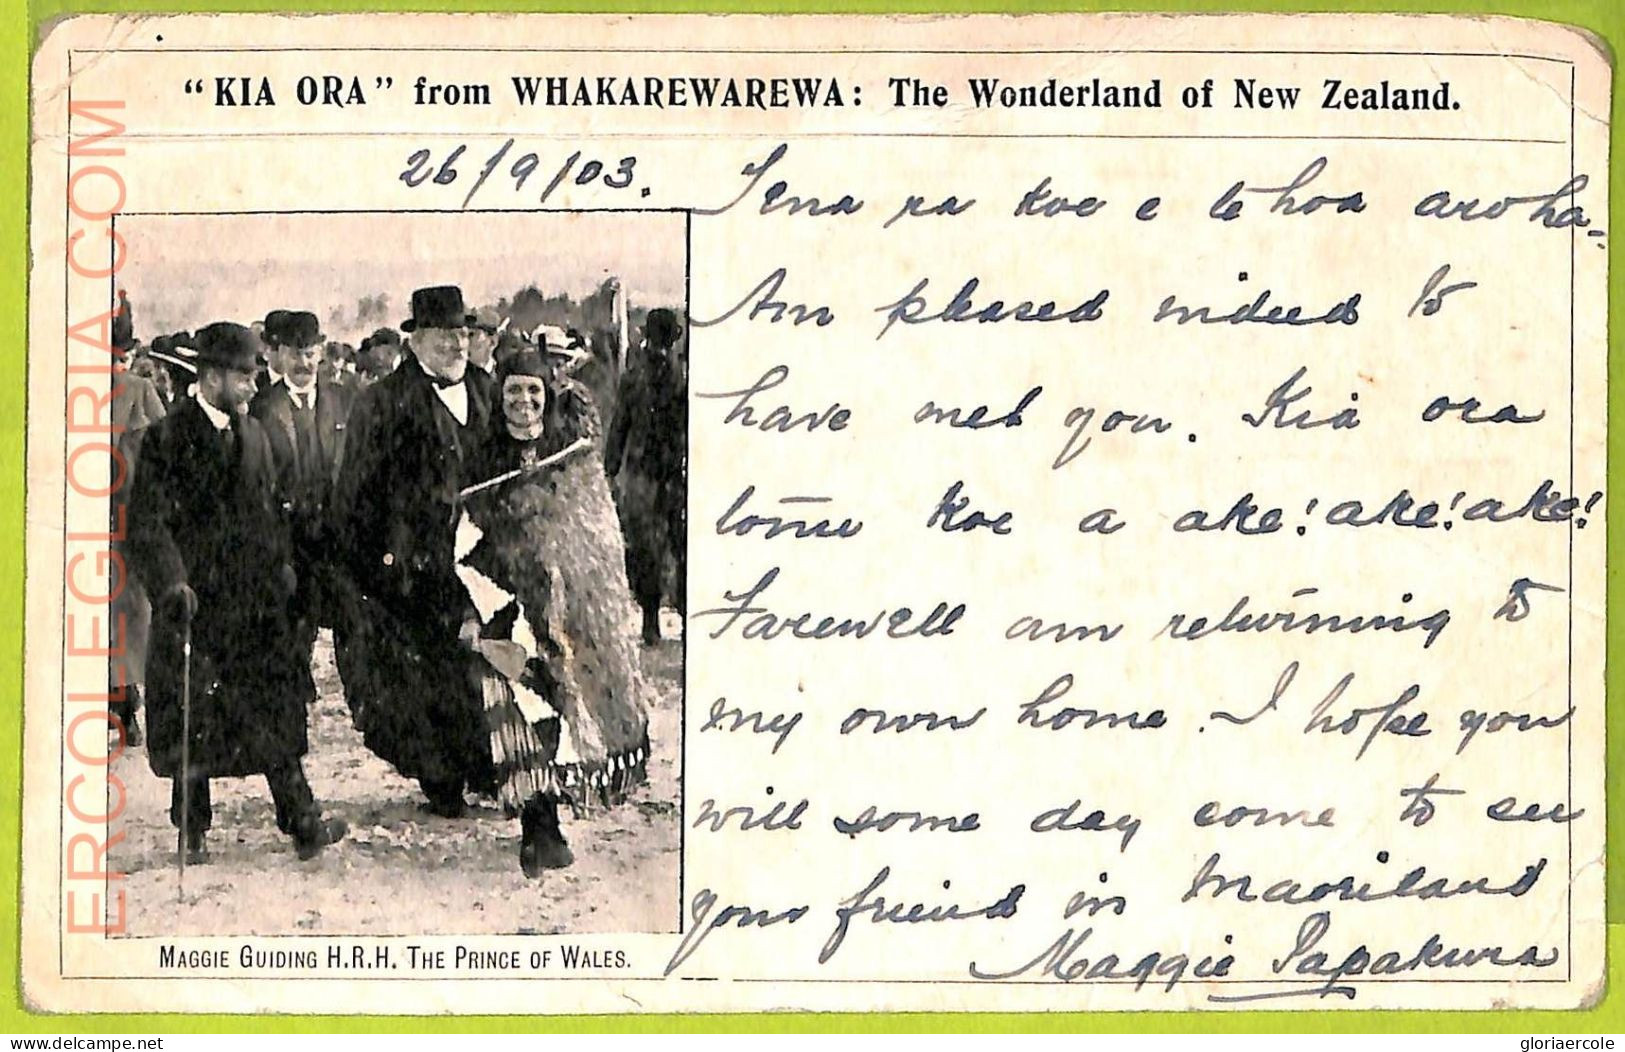 "KIA ORA" from WHAKAREWAREWA: The Wonderland of New Zealand.
26/9/03.
Tena ra koe e te hoa aroha-
Am pleased indeed to
have met you. Kia ora
tonu koe a ake! ake! ake!
Farewell am returning to
my own home. I hope you
will some day come to see
your friend in Maoriland
Maggie Papakura
MAGGIE GUIDING H.R.H. THE PRINCE OF WALES.
ERCOLEGLORIA.COM
delcampe.net
gloriaercole